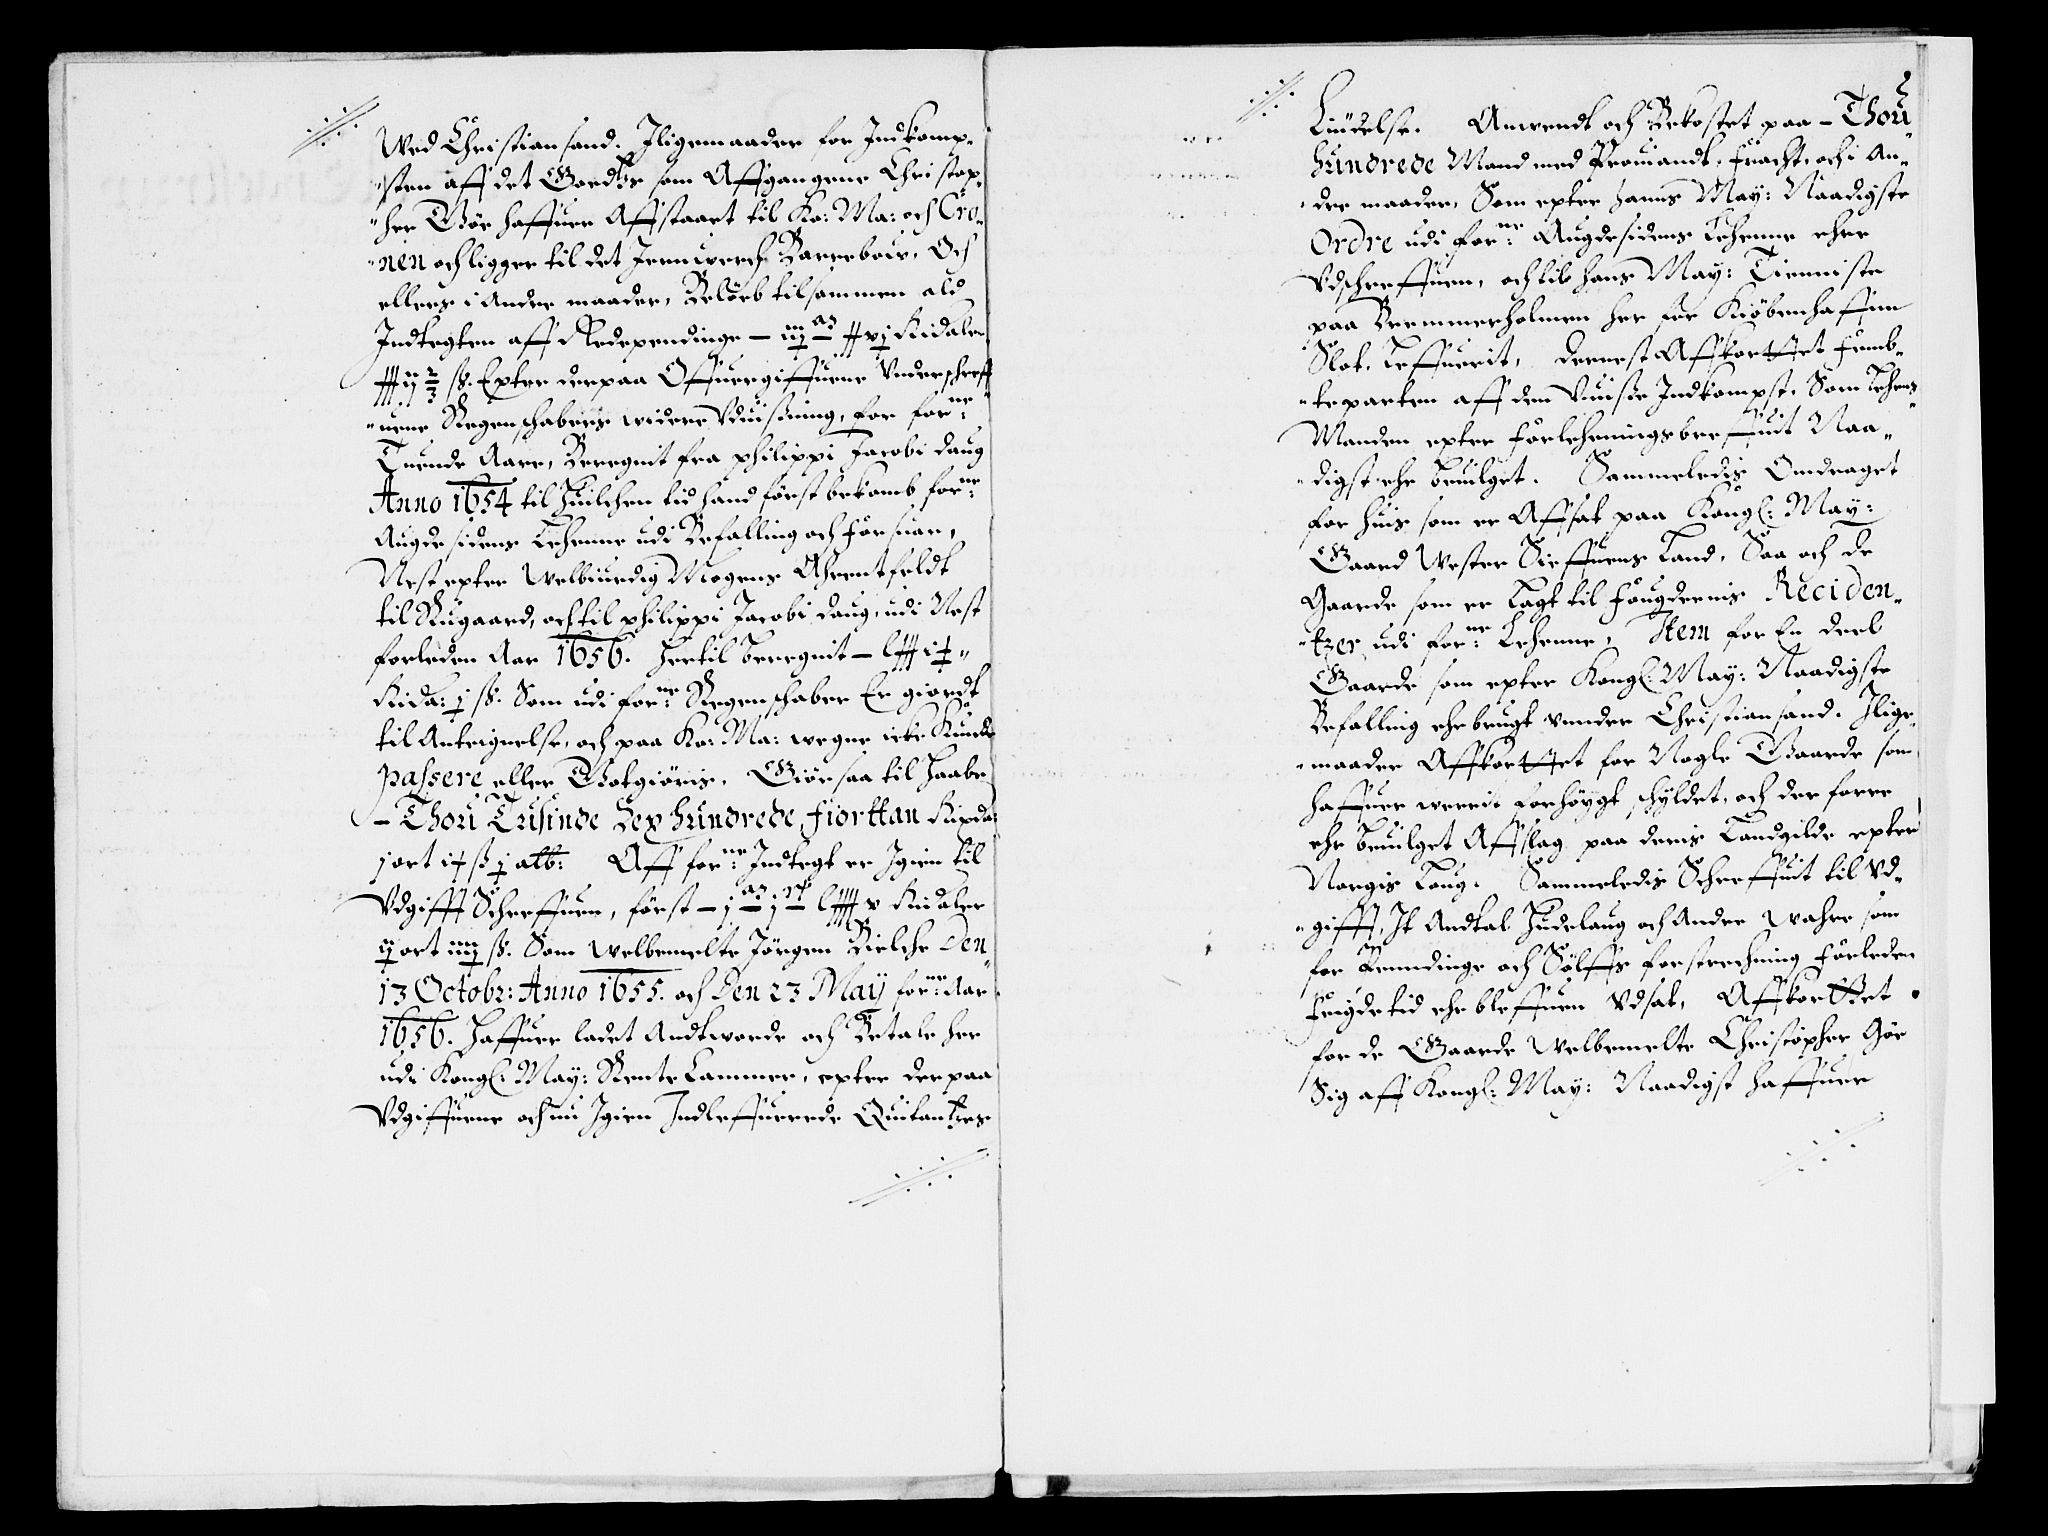 Wed Christiansand. Iligemaader for Indkomp„
„sten aff det Goedtz som Affgangene Christop„
„her Giøe haffuer Affstaaet til Ko: Ma: och Cro„
„nen och ligger til det Jernverch Barreboiv. Och
ellers i Andre maader, Beløeb tilsammen ald
Indtegten aff Redepenndinge – Ridaler
ß. Epter derpaa Offuergiffuene Vnderschreff„
„uene Regenschabers widere Vduisning, for forne:
Tuende Aare, Beregnit fra philippi Jacobi daug
Anno 1654 til Huilchen tid hand først bekomb forne:
Augdesidens Lehenne udi Befalling och forsuar,
Nest epter Welbiurdig Mogens Ahrentfeldt
til Rugaard, och til philippi Jacobi daug, udi Nest
forleden Aar 1656. Hertil beregnit –
Rida: j ß. Som udi forne: Regenschaber Er giordt
til Anteignelse, och paa Ko: Ma: wegne icke Kunde
passere eller Gotgiøris. Giør saa til Haabe
– Thou Tusinde Sex hundrede, fiorttan Rixda:
j ort ß j alb: Aff forne: Indtegt er Igien til
Vdgifft Schreffuen, først – Ridaler
ij ort iiij ß. Som Welbemelte Jørgen Bielche Den„
13 Octobr: Anno 1655. och Den 23 Maij forne: Aar
1656. Haffuer ladet Andtworde och Betale her
udi Kongl: May: Rente Cammer, epter derpaa
Vdgiffuene och nu Igien Indleffuerede Quitantzes
2
Liudelse. Anwendt och Bekostet paa – Thou„
hundrede Mand med Prouiandt, Fracht, och i An„
„dre maader, Som epter Hanns May: Naadigste
Ordre udi forne: Augdesidens Lehenne ehre
Vdschreffuen, och til hans May: Tienniste
paa Bremmerholmen her for Kiøbenhaffun
Slot, Leffuerit, dernest Affkorttet Femb„
„teparten aff den Vuisse Indkompst, Som Lehens„
Manden epter Forlehningsbreffuit Naa„
„digst ehr beuilget. Sammeledis Omdraget
for huis som er Affsat paa Kongl: May:
Gaard Wester Sieffuens Land, Saa och de
Gaarde som er Lagt til Fougdernis Reciden„
„tzer, udi forne: Lehenne, Item for En deel
Gaarde som epter Kongl: May: Naadigste
Befalling ehr brugt vnnder Christiansand. Ilige„
„maader Affkorttet for Nogle Gaarde som
haffuer werrit forhøygt schyldet, och der forre
ehr beuilget Affslag paa deris Landgilde epter
Norgis Laug. Sammeledis Schreffuit til Vd„
„gifft, It Andtal Hudelaug och Andre Wahre som
for Penndinge och Sølffs forstrechning forleden
Feigdetid ehr bleffuen Vdsat, Affkorttet
for de Gaarde Welbemelte Christopher Giøe
Sig aff Kongl: May: Naadigst haffuer